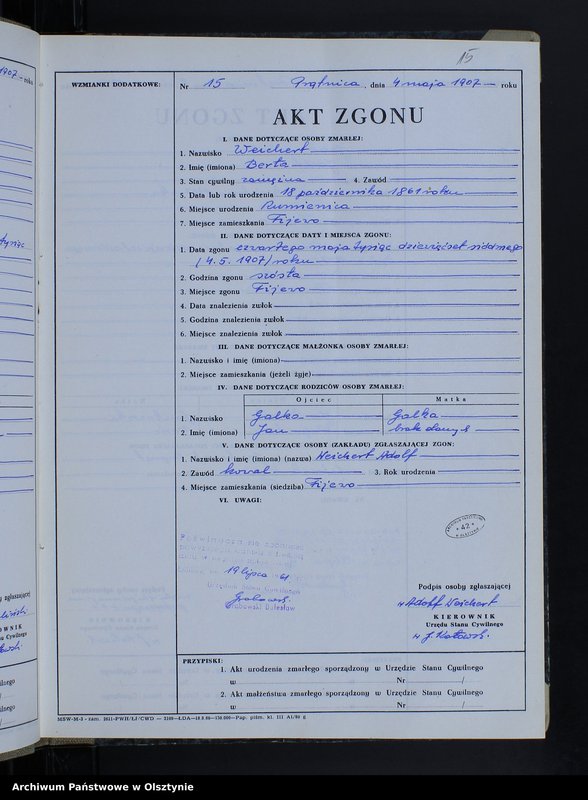 15
WZMIANKI DODATKOWE:
Nr 15 Prątnica, dnia 4 maja 1907 — roku
AKT ZGONU
I. DANE DOTYCZĄCE OSOBY ZMARŁEJ:
1. Nazwisko Weichert
2. Imię (imiona) Berta
3. Stan cywilny zamężna 4. Zawód
5. Data lub rok urodzenia 18 października 1861 roku
6. Miejsce urodzenia Rumienica
7. Miejsce zamieszkania Fijewo
II. DANE DOTYCZĄCE DATY I MIEJSCA ZGONU:
1. Data zgonu czwartego maja tysiąc dziewięćset siódmego
(4.5.1907) roku
2. Godzina zgonu szósta
3. Miejsce zgonu Fijewo
4. Data znalezienia zwłok
5. Godzina znalezienia zwłok
6. Miejsce znalezienia zwłok
III. DANE DOTYCZĄCE MAŁŻONKA OSOBY ZMARŁEJ:
1. Nazwisko i imię (imiona)
2. Miejsce zamieszkania (jeżeli żyje)
IV. DANE DOTYCZĄCE RODZICÓW OSOBY ZMARŁEJ:
Ojciec Matka
1. Nazwisko Galka Galka
2. Imię (imiona) Jan brak danych
V. DANE DOTYCZĄCE OSOBY (ZAKŁADU) ZGŁASZAJĄCEJ ZGON:
1. Nazwisko i imię (imiona) (nazwa) Weichert Adolf
2. Zawód kowal 3. Rok urodzenia
4. Miejsce zamieszkania (siedziba) Fijewo
VI. UWAGI:
42
19 lipca 61
Podpis osoby zgłaszającej
Adolf Weichert
KIEROWNIK
Urzędu Stanu Cywilnego
PRZYPISKI:
1. Akt urodzenia zmarłego sporządzony w Urzędzie Stanu Cywilnego
w Nr /
2. Akt małżeństwa zmarłego sporządzony w Urzędzie Stanu Cywilnego
w Nr /
Archiwum Państwowe w Olsztynie